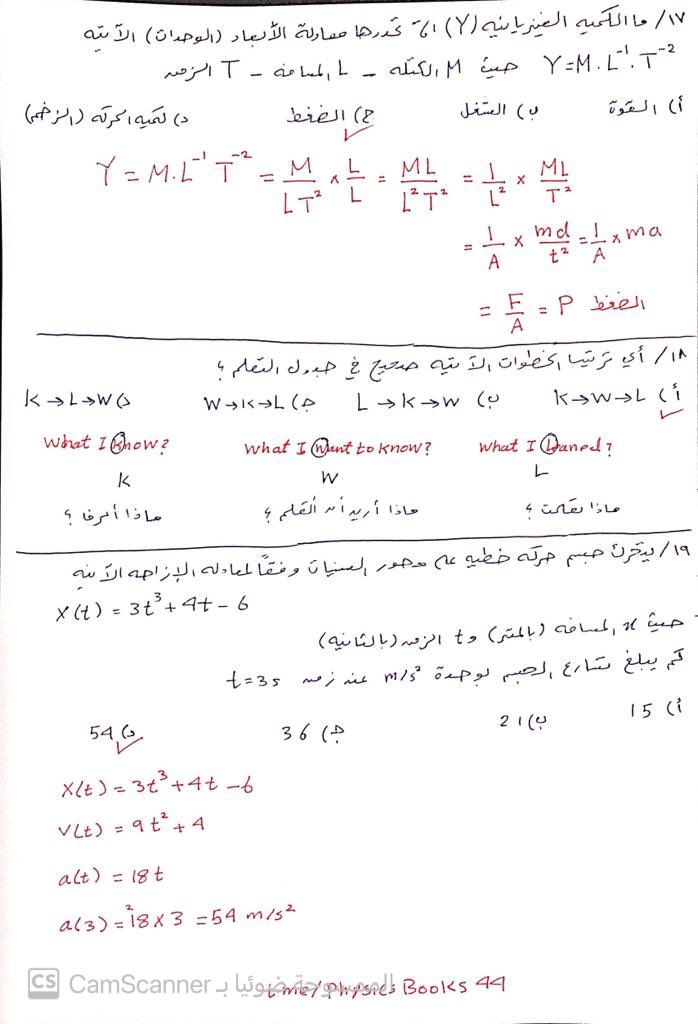 ١٧/ ما الكميه الفيزيائيه (Y) التي تحددها معادلة الأبعاد (الوحدات) الآتيه
Y=M.L⁻¹.T⁻² حيث M الكتله – L المسافه – T الزمن
أ) القوة ب) الشغل ج) الضغط د) كميه الحركه (الزخم)
Y = M.L⁻¹ T⁻² = M/LT² × L/L = ML/L²T² = 1/L² × ML/T²
= 1/A × md/t² = 1/A × ma
= F/A = P الضغط
١٨/ أي ترتيب الخطوات الآتيه صحيح في جدول التعلم ؟
أ) K→W→L ب) L→K→W ج) W→K→L د) K→L→W
What I Know? What I Want to know? What I Laned?
K W L
ماذا أعرف ؟ ماذا أريد أن أتعلم ؟ ماذا تعلمت ؟
١٩/ يتحرك جسم حركه خطيه على محور السينات وفقاً لمعادله الإزاحه الآتيه
X(t) = 3t³ + 4t - 6
حيث x المسافه (بالمتر) و t الزمن (بالثانيه)
كم يبلغ تسارع الجسم بوحدة m/s² عند زمن t=3s
أ) 15 ب) 21 ج) 36 د) 54
X(t) = 3t³ + 4t - 6
V(t) = 9t² + 4
a(t) = 18t
a(3) = 18 × 3 = 54 m/s²
CS CamScanner الممسوحة ضوئيا بـ
t.me/Physics Books 44